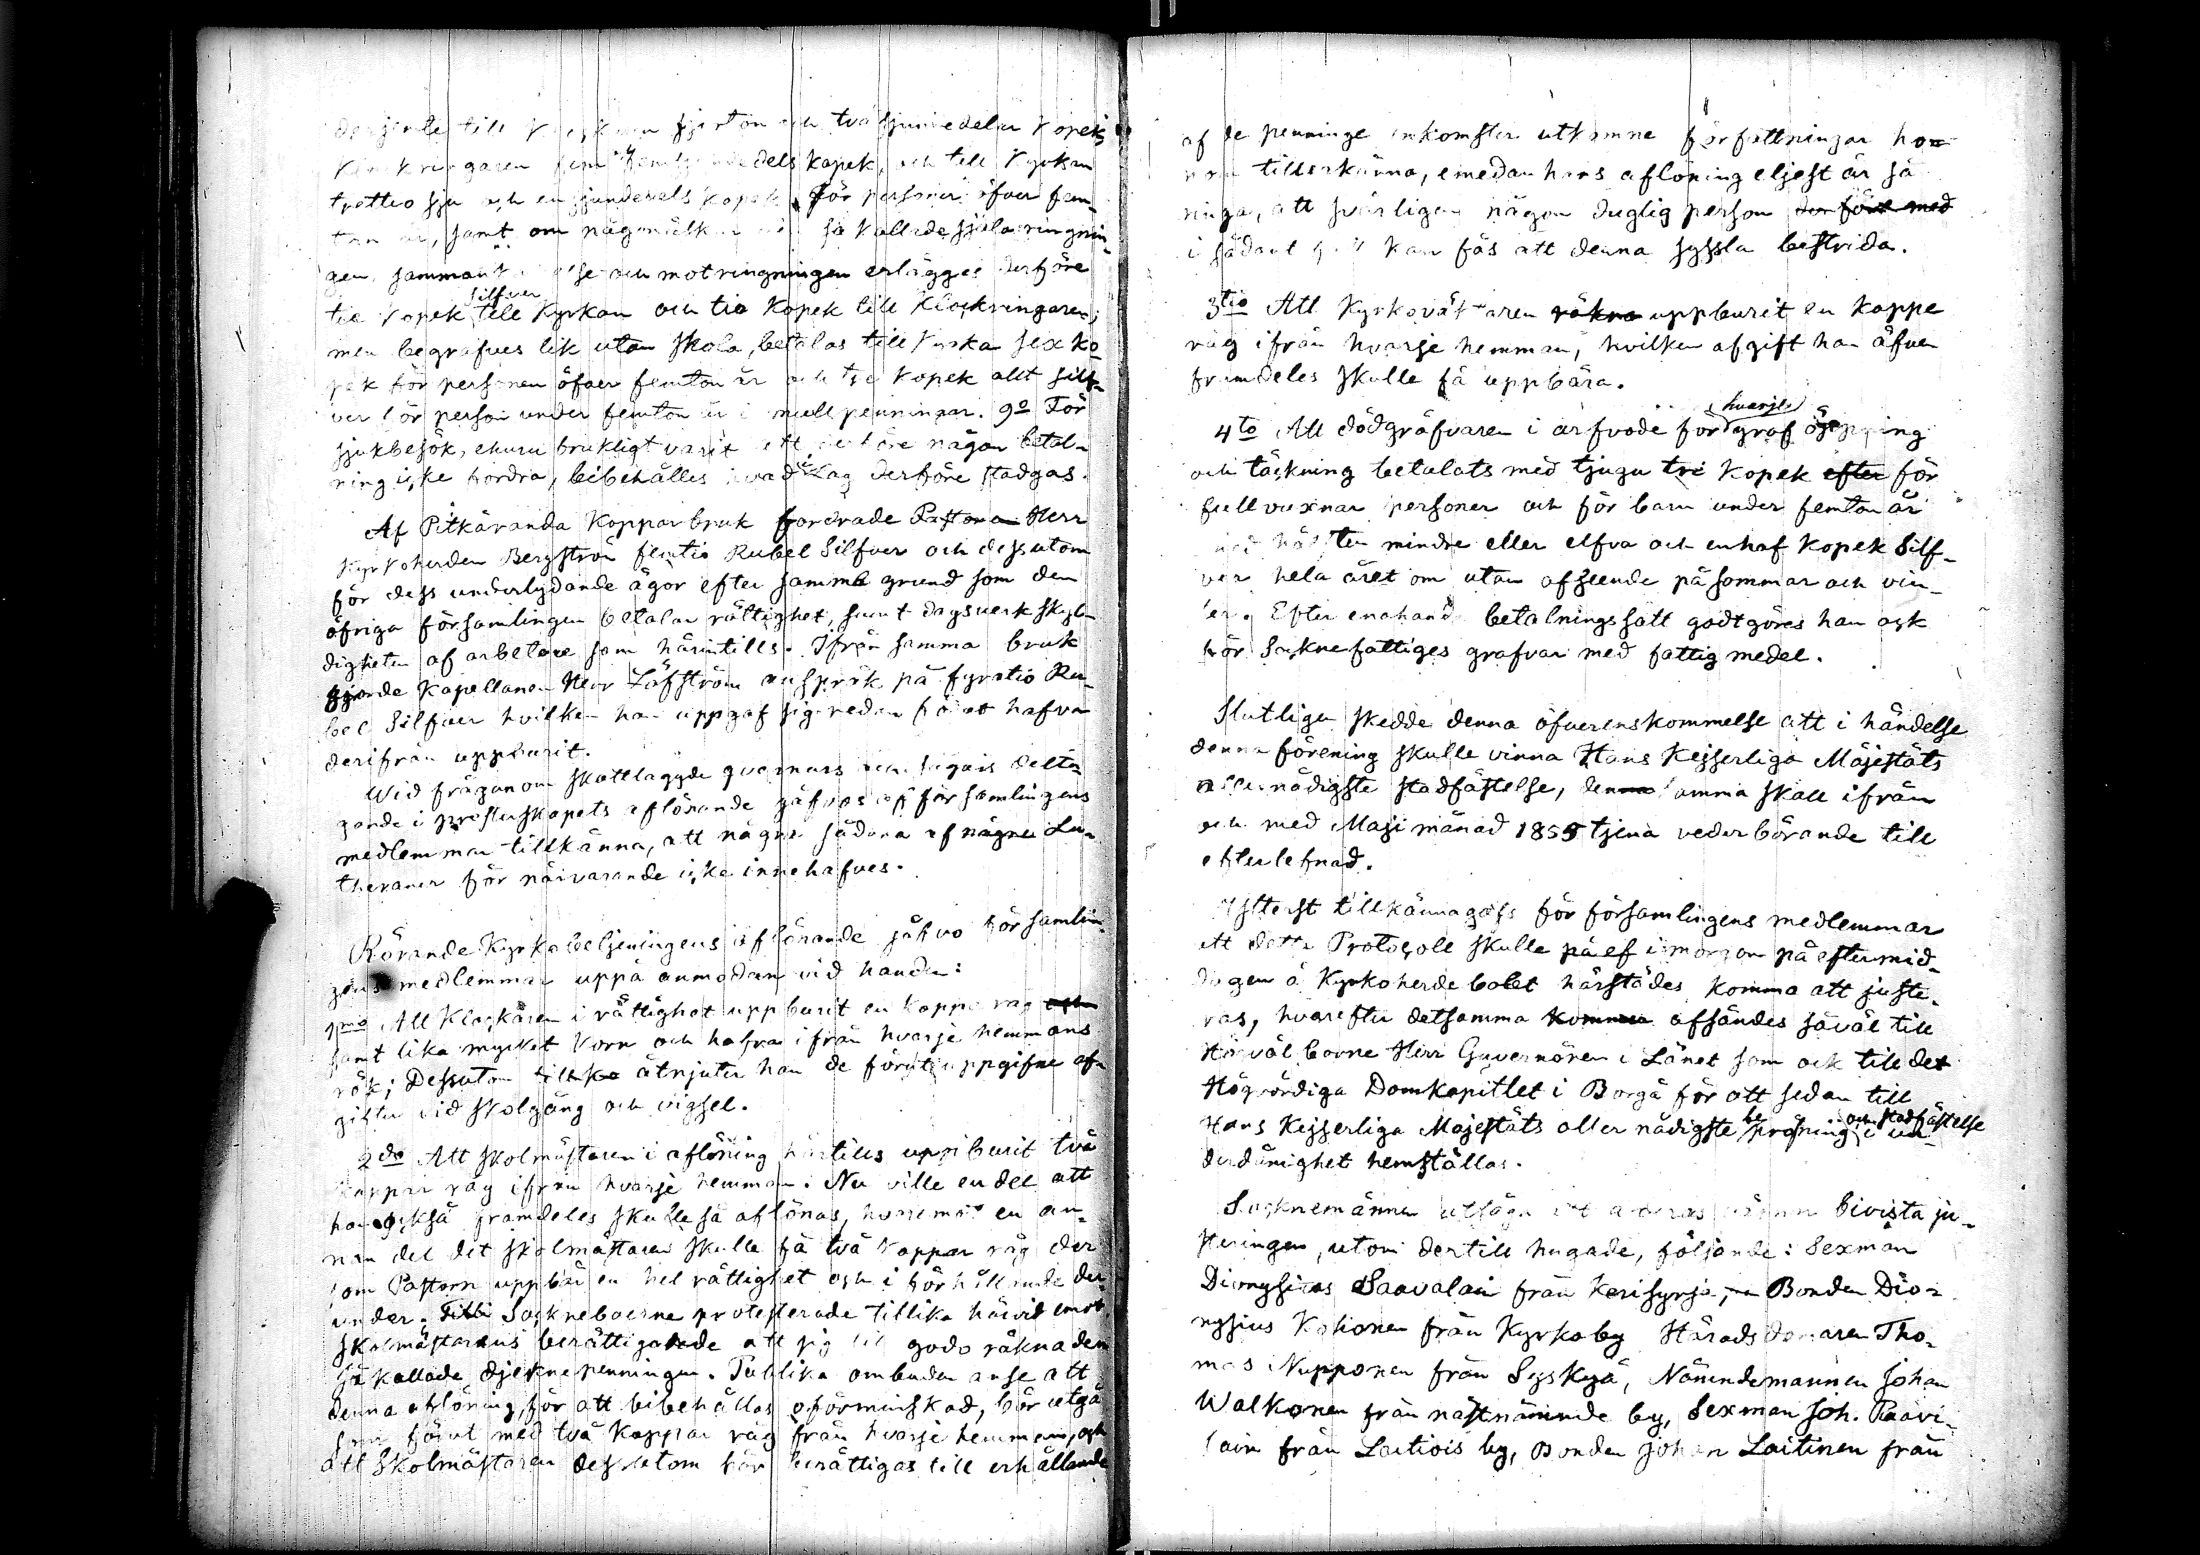 till fjorton och två sjundedelar Kopek
fem sjundedels kopek, och till Kyrkan
trettio sju och en sjundedels Kopek för personer öfver fem-
ton år, samt om så kallade själaringnin-
gen, och motringningen erlägges derföre
tie Kopek silfver till Kyrkan och tio Kopek till Klockringaren;
men begrafves lik utan skola, betalas till Kyrka sex ko-
pek för personen öfver femton år och tre Kopek allt silf-
ver för person under femton år i penningar. 9o För
sjukbesök, ehuru brukligt varit att derföre någon betal-
ning icke fordra, bibehålles hvad Lag derföre stadgas.
Af Pitkäranda Kopparbruk fordrade Pastorn Herr
Kyrkoherden Bergström femtio Rubel Silfver och dessutom
för dess underlydande ägor efter samma grund som den
öfriga församlingen betalar rättighet, samt dagsverksskyl-
digheten af arbetare som härintills. Ifrån samma bruk
gjorde Kapellanen Herr Löfström anspråk på fyratio Ru-
bel Silfver hvilken han uppgaf sig redan förut hafva
derifrån uppburit.
Wid frågan om skattlaggde qvarnars och sågars delta-
gande i presterskapets aflönande gåfvos af församlingens
medlemmar tillkänna, att några sådana af några Lu-
theraner för närvarande icke innehafves.
Rörande Kyrkobetjeningens aflönande gåfvo församlin-
gens medlemmar uppå anmodan vid handen:
1mo Att Klockaren i rättighet uppburit en Kappe råg
samt lika mycket Korn och hafra ifrån hvarje hemmans
rök; Dessutom åtnjuter han de förut uppgifne af-
gifter vid skolgång och vigsel.
2do Att skolmästaren i aflöning härtills uppburit två
kappar råg ifrån hvarje hemman. Nu ville en del att
han också framdeles skulle så aflönas, hvaremot en an-
nan del det skolmästaren skulle få två kappar råg der
som Pastorn uppbär en hel rättighet och i förhållande der-
under. Sockneboerne protesterade tillika härvid emot
skolmästarens berättigande att sig till godo räkna den
så kallade djeknepenningen. Publika ombuden anse att
denna aflöning, för att bibehållas oförminskad, bör utgå
som förut med två Kappar råg från hvarje hemman, och
att Skolmästaren dessutom bör berättigas till erhållande
af de penninge inkomster utkomne författningar ho-
nom tillerkänna, emedan hans aflöning eljest är så
ringa, att svårligen någon duglig person den före med
i sådant fall kan fås att denna syssla bestrida.
3tio Att Kyrkovaktaren räkna uppburit en kappe
råg ifrån hvarje hemman, hvilken afgift han äfven
framdeles skulle få uppbära.
4to Att dödgräfvaren i arfvode för hvarje graf öppning
och täckning betalats med tjugu tre Kopek efter för
fullvuxnar personer och för barn under femton år
med hälften mindre eller elfva och en half Kopek Silf-
ver hela året om utan afseende på sommar och vin-
ter. Efter enahanda betalningssätt godtgöres han ock
för Socknefattiges grafvar med fattig medel.
Slutligen skedde denna öfverenskommelse att i händelse
denna förening skulle vinna Hans Kejserliga Majestäts
allernådigste stadfästelse, densamma skall ifrån
och med Maji månad 1855 tjena vederbörande till
efterlefnad.
Ytterst tillkännagafs för församlingens medlemmar
att detta Protocoll skulle på ef i morgon på eftermid-
dagen å Kyrkoherde bolet härstädes komma att juste-
ras, hvarefter detsamma komma afsändes såväl till
Högvälborne Herr Guvernören i Länet som ock till det
Högvördiga Domkapitlet i Borgå för att sedan till
Hans Kejserliga Majestäts aller nådigste bepröfning och stadfästelse i un-
derdånighet hemställas.
Socknemännen bivista ju-
steringen, utom dertill hugade, följande: Sexman
Dionysius Saavalain från Kerisyrjä, Bonden Dio-
nysius Kokonen från Kyrkoby Häradsdomaren Tho-
mas Nupponen från Syskyä, Nämndemannen Johan
Walkonen från nästnämnde by, Sexman Joh. Paavi-
lain från Leitiois by, Bonden Johan Laitinen från